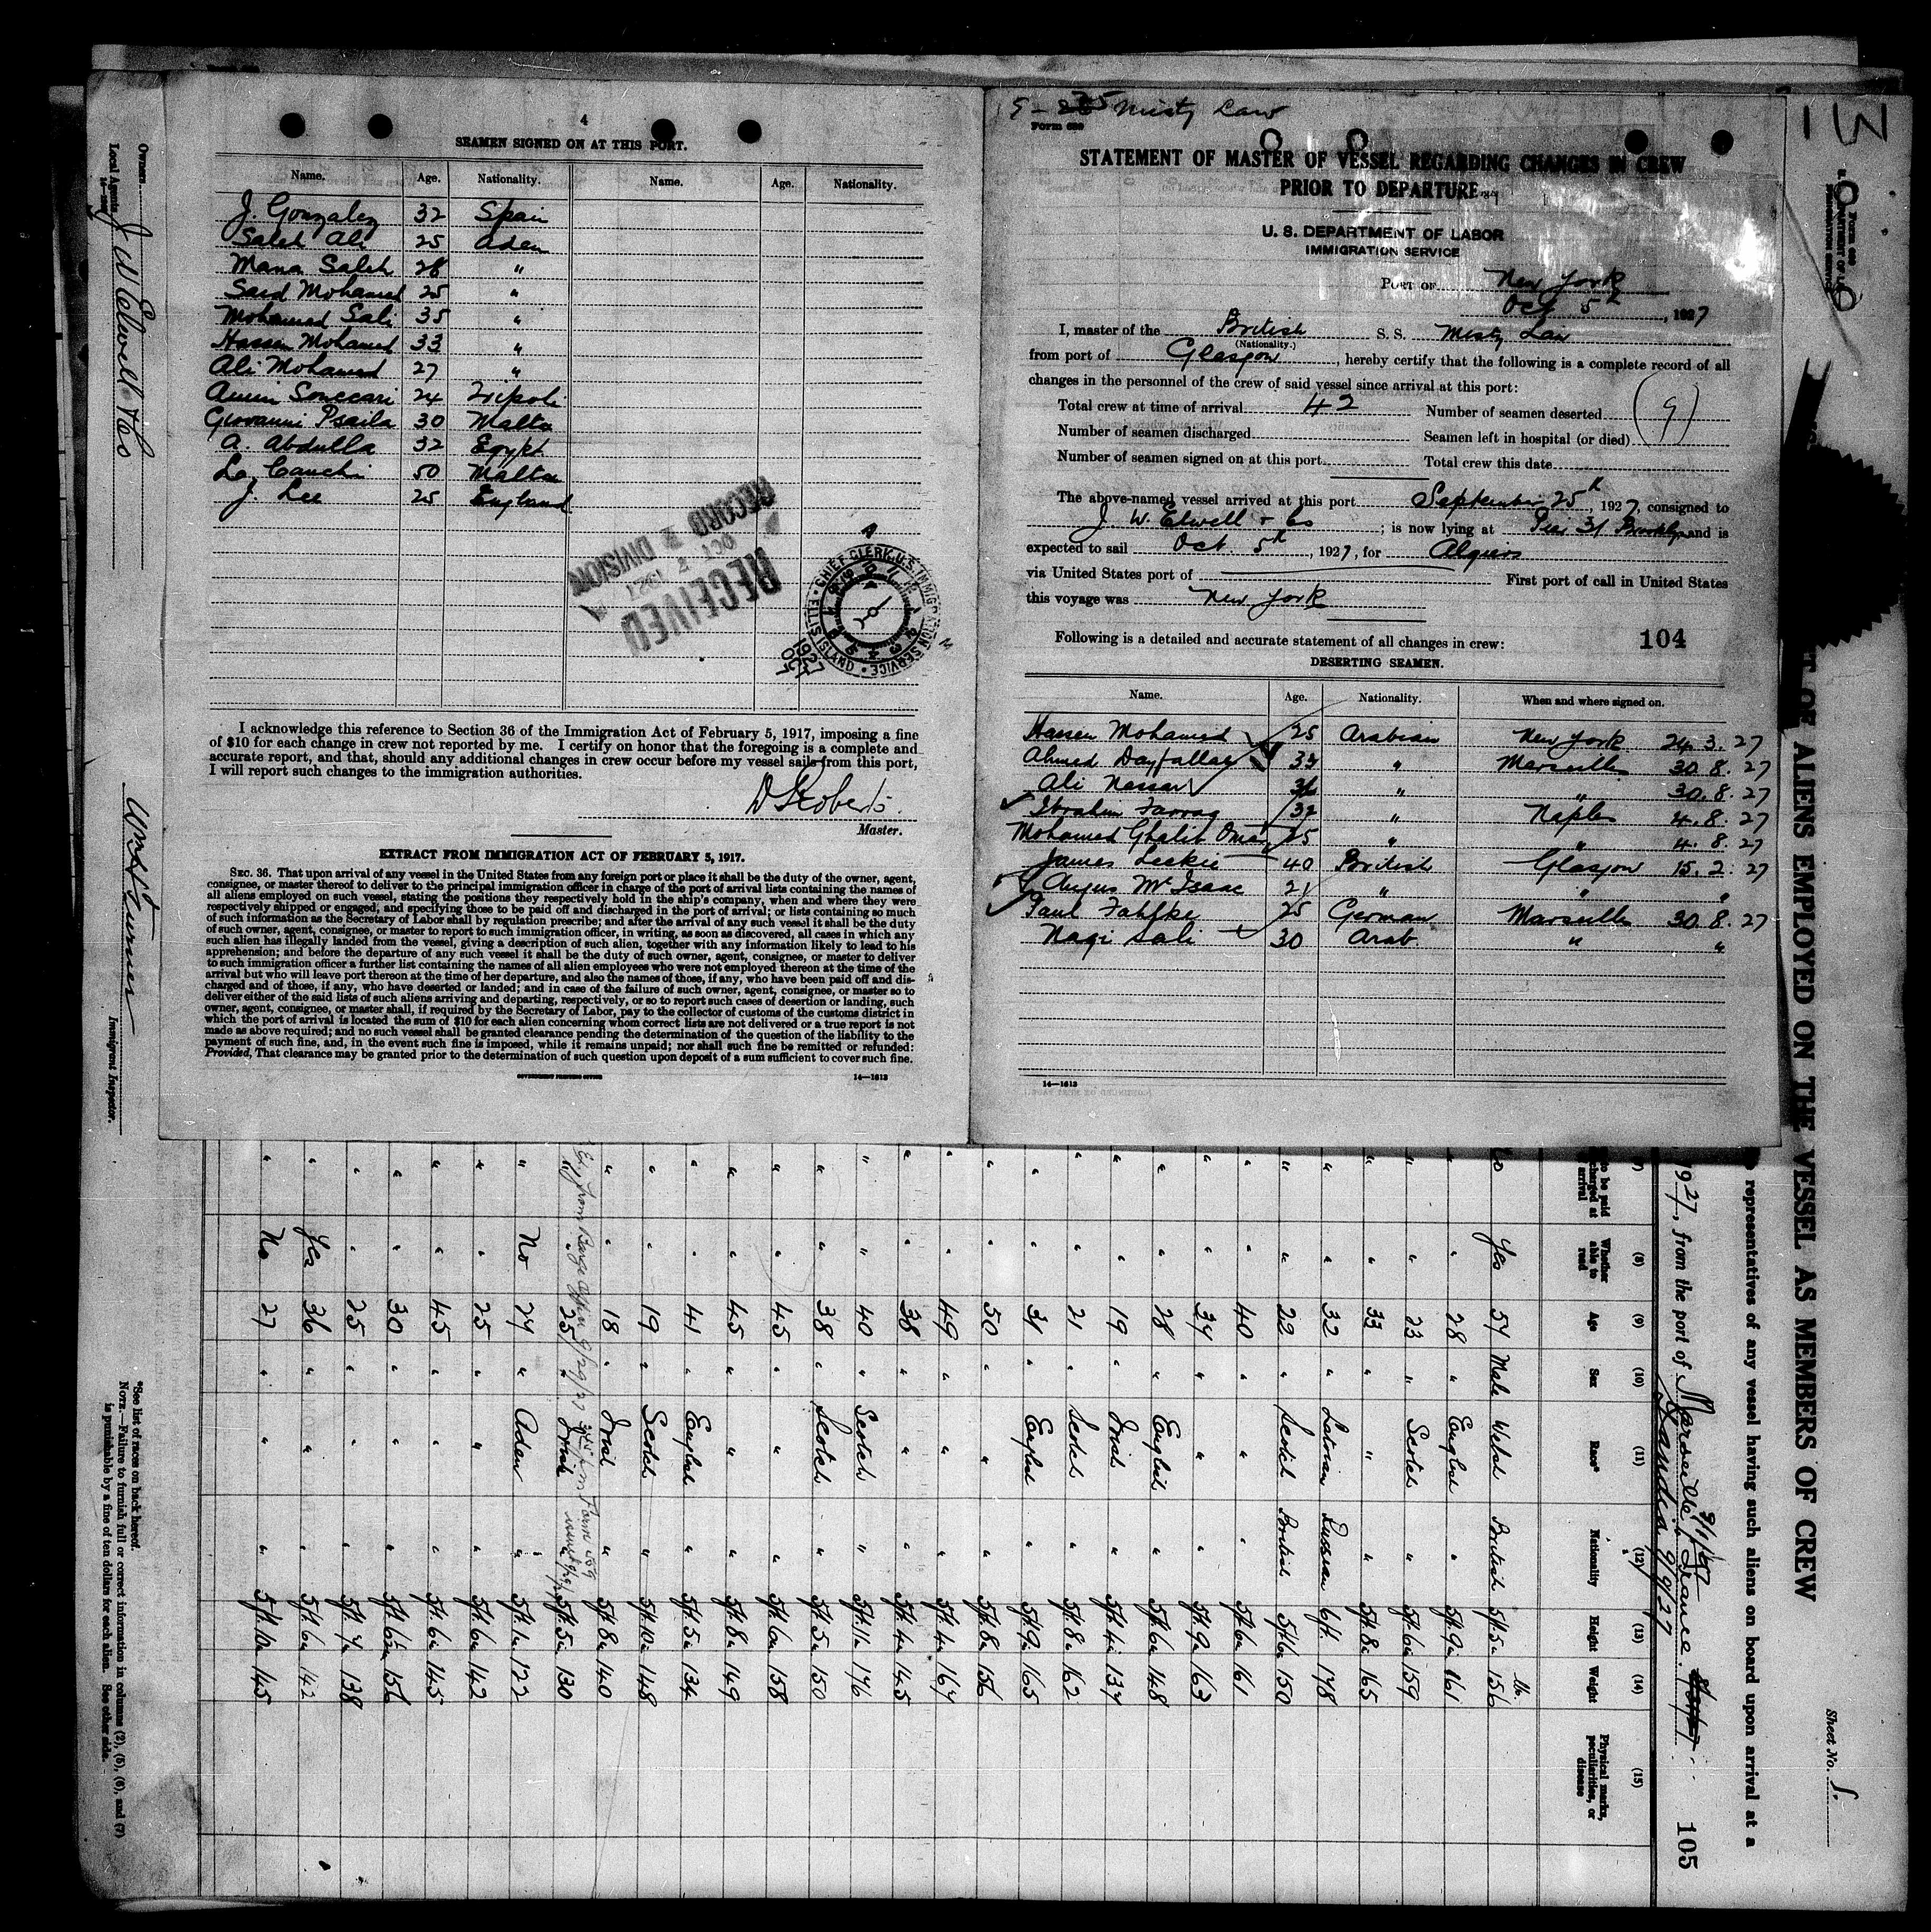 4
SEAMEN SIGNED ON AT THIS PORT.
Name. Age. Nationality. Name. Age. Nationality.
J. Gonzalez 32 Spain
Saleh Ali 25 Aden
Mana Saleh 28 "
Said Mohamed 25 "
Mohamed Sali 35 "
Hassen Mohamed 33 "
Ali Mohamed 27 "
Amin Sonccari 24 Tripoli
Giovanni Psaila 30 Malta
A. Abdulla 32 Egypt
Lo. Cauchi 50 Malta
J. Lee 25 England
RECEIVED
OCT 7 1927
RECORD DIVISION
CHIEF CLERK U.S. IMMIGRATION SERVICE • ELLIS ISLAND •
1927 OCT
I acknowledge this reference to Section 36 of the Immigration Act of February 5, 1917, imposing a fine
of $10 for each change in crew not reported by me. I certify on honor that the foregoing is a complete and
accurate report, and that, should any additional changes in crew occur before my vessel sails from this port,
I will report such changes to the immigration authorities.
D Roberts.
Master.
EXTRACT FROM IMMIGRATION ACT OF FEBRUARY 5, 1917.
SEC. 36. That upon arrival of any vessel in the United States from any foreign port or place it shall be the duty of the owner, agent,
consignee, or master thereof to deliver to the principal immigration officer in charge of the port of arrival lists containing the names of
all aliens employed on such vessel, stating the positions they respectively hold in the ship's company, when and where they were
respectively shipped or engaged, and specifying those to be paid off and discharged in the port of arrival; or lists containing so much
of such information as the Secretary of Labor shall by regulation prescribe; and after the arrival of any such vessel it shall be the duty
of such owner, agent, consignee, or master to report to such immigration officer, in writing, as soon as discovered, all cases in which any
such alien has illegally landed from the vessel, giving a description of such alien, together with any information likely to lead to his
apprehension; and before the departure of any such vessel it shall be the duty of such owner, agent, consignee, or master to deliver
to such immigration officer a further list containing the names of all alien employees who were not employed thereon at the time of the
arrival but who will leave port thereon at the time of her departure, and also the names of those, if any, who have been paid off and dis-
charged and of those, if any, who have deserted or landed; and in case of the failure of such owner, agent, consignee, or master so to
deliver either of the said lists of such aliens arriving and departing, respectively, or so to report such cases of desertion or landing, such
owner, agent, consignee, or master shall, if required by the Secretary of Labor, pay to the collector of customs of the customs district in
which the port of arrival is located the sum of $10 for each alien concerning whom correct lists are not delivered or a true report is not
made as above required; and no such vessel shall be granted clearance pending the determination of the question of the liability to the
payment of such fine, and, in the event such fine is imposed, while it remains unpaid; nor shall such fine be remitted or refunded:
Provided, That clearance may be granted prior to the determination of such question upon deposit of a sum sufficient to cover such fine.
GOVERNMENT PRINTING OFFICE 14—1613
9 - 25 Misty Law
Form 689
STATEMENT OF MASTER OF VESSEL REGARDING CHANGES IN CREW
PRIOR TO DEPARTURE
U. S. DEPARTMENT OF LABOR
IMMIGRATION SERVICE
PORT OF New York
Oct 5th, 1927
I, master of the British S. S. Misty Law
(Nationality.)
from port of Glasgow, hereby certify that the following is a complete record of all
changes in the personnel of the crew of said vessel since arrival at this port:
Total crew at time of arrival 42 Number of seamen deserted (9)
Number of seamen discharged Seamen left in hospital (or died)
Number of seamen signed on at this port Total crew this date
The above-named vessel arrived at this port September 25th, 1927, consigned to
J. W. Elwell & Co; is now lying at Pier 31 Brooklyn and is
expected to sail Oct. 5th, 1927, for Algiers
via United States port of First port of call in United States
this voyage was New York
Following is a detailed and accurate statement of all changes in crew: 104
DESERTING SEAMEN.
Name. Age. Nationality. When and where signed on.
Hassen Mohamed 25 Arabian New York 24.3.27
Ahmed Dayfallas 33 " Marseilles 30.8.27
Ali Nassar 36 " " 30.8.27
Ibrahim Farrag 32 " Naples 4.8.27
Mohamed Ghalib Omar 25 " " 4.8.27
James Leckie 40 British Glasgow 15.2.27
Angus McIsaac 21 " "
Paul Fahlke 25 German Marseilles 30.8.27
Nagi Sali 30 Arab " "
14—1613
Owners
Local Agents J W Elwell & Co
14—240
Immigrant Inspector.
*See list of races on back hereof.
NOTE.—Failure to furnish full or correct information in columns (2), (5), (6), and (7)
is punishable by a fine of ten dollars for each alien. See other side.
Form 680
DEPARTMENT OF LABOR
IMMIGRATION SERVICE
Sheet No. 1.
OF ALIENS EMPLOYED ON THE VESSEL AS MEMBERS OF CREW
representatives of any vessel having such aliens on board upon arrival at a
1927, from the port of Marseille, France. 105
9/1/27
9/9/27
(7) (8) (9) (10) (11) (12) (13) (14) (15)
to be paid discharged at arrival Whether able to read Age Sex Race* Nationality Height Weight Physical marks, peculiarities, or disease
No Yes 54 Male Welsh British 5ft 5in 156 lb.
" " 28 " English " 5ft 9in 161
" " 23 " Scotch " 5ft 6in 159
" " 33 " " " 5ft 8in 165
" " 32 " Latvian Russian 6ft. 178
" " 22 " Scotch British 5ft 6in 150
" " 40 " " " 5ft 6in 161
" " 34 " " " 5ft 9in 163
" " 28 " English " 5ft 6in 148
" " 19 " Irish " 5ft 4in 134
" " 21 " Scotch " 5ft 8in 162
" " 31 " English " 5ft 9in 165
" " 50 " " " 5ft 8in 156
" " 49 " " " 5ft 4in 164
" " 38 " " " 5ft 4in 145
" " 40 " Scotch " 5ft 11in 176
" " 38 " Scotch " 5ft 5in 150
" " 45 " " " 5ft 6in 158
" " 45 " " " 5ft 8in 149
" " 41 " English " 5ft 5in 134
" " 19 " Scotch " 5ft 10in 148
" " 18 " Irish " 5ft 8in 140
" " 25 " Irish " 5ft 5in 130
" No 24 " Aden " 5ft 1in 122
" " 25 " " " 5ft 6in 142
" " 45 " " " 5ft 6in 145
" " 30 " " " 5ft 6in 156
" " 25 " " " 5ft 4in 138
" Yes 36 " " " 5ft 6in 142
" No 27 " " " 5ft 10in 145